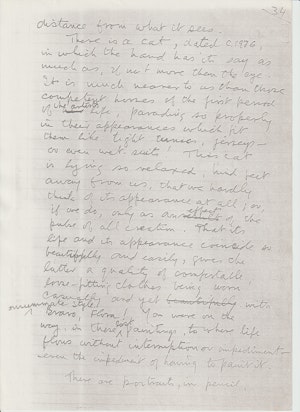 34
distance from what it sees.
There is a cat, dated c1976,
in which the hand has its say as
much as, if not more than the eye.
It is much nearer to us than those
competent horses of the first period
of the artist's life, parading so properly
in their appearances which fit
them like tight jerseys
or even wet-suits! This cat
is lying so relaxed, hind feet
away from us, that we hardly
think of its appearance at all; or,
if we do, only as an of the
pulse of all creation. That its
life and its appearance coincide so
beautifully and easily, gives the
latter a quality of comfortable
loose-fitting clothes being worn
casually and yet with
consummate style!
Bravo, Flora! You were on the
way, in these last paintings, to where life
flows without interruption or impediment -
even the impediment of having to paint it.
There are portraits, in pencil,